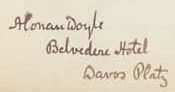 A Conan Doyle
Belvedere Hotel
Davos Platz